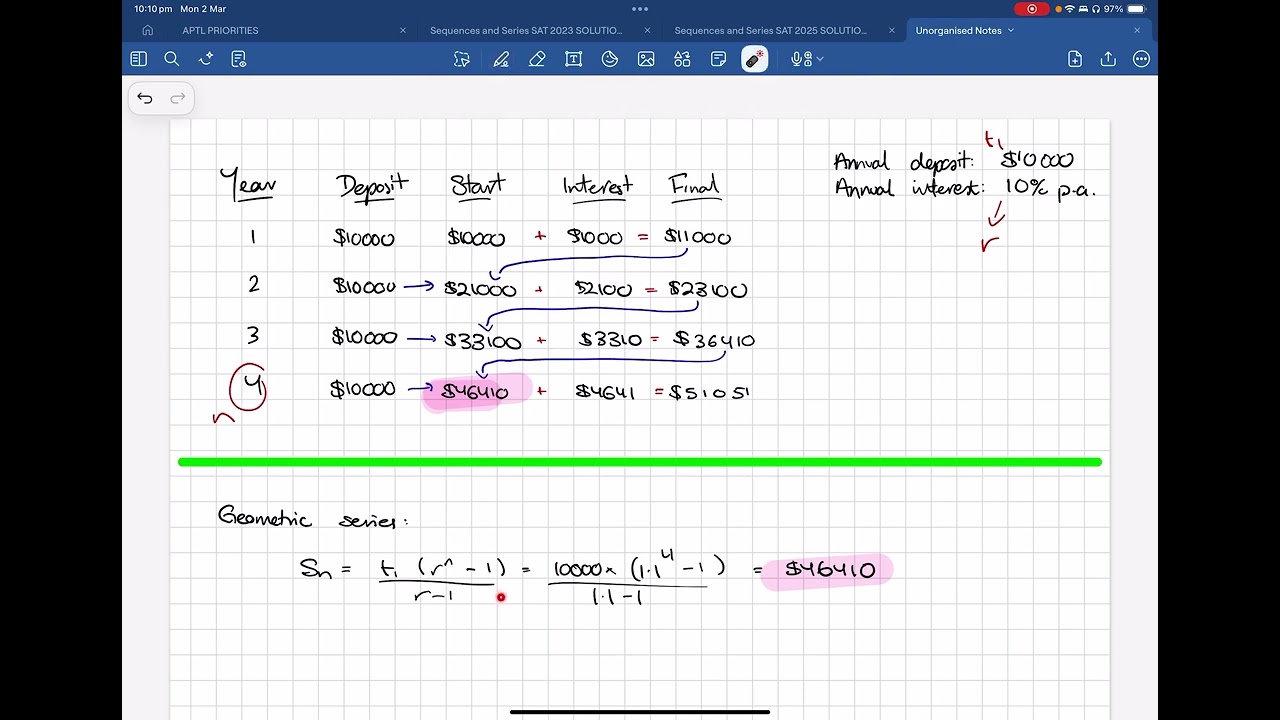 10:10 pm Mon 2 Mar 97%
APTL PRIORITIES Sequences and Series SAT 2023 SOLUTIO... Sequences and Series SAT 2025 SOLUTIO... Unorganised Notes
t₁
Annual deposit: $10000
Annual interest: 10% p.a.
r
Year Deposit Start Interest Final
1 $10000 $10000 + $1000 = $11000
2 $10000 → $21000 + $2100 = $23100
3 $10000 → $33100 + $3310 = $36410
4 $10000 → $46410 + $4641 = $51051
n
Geometric series:
Sn = t₁ (rⁿ - 1) / r-1 = 10000 × (1.1⁴ - 1) / 1.1-1 = $46410